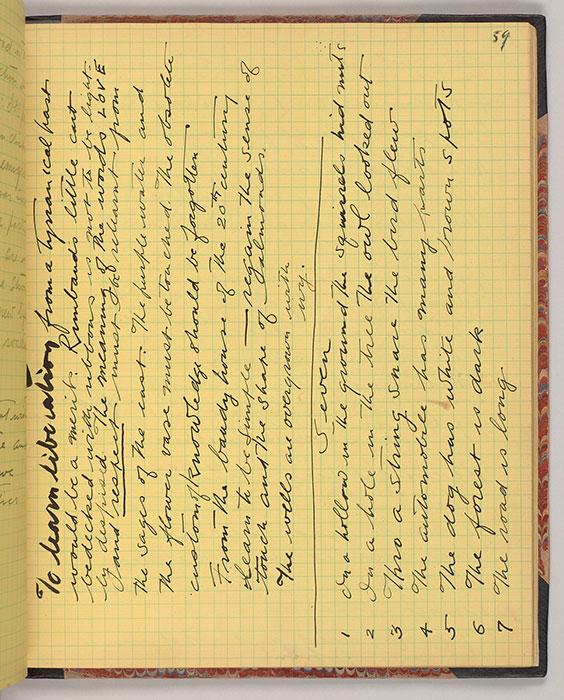 59
To learn liberation from a tyranical past
would be a merit. Rimbauds little cart
bedecked with ribbons is not to be light-
ly dispised. The meaning of the words LOVE
and respect must be relearnt from
the sages of the east. The purple water and
the flower vase must be touched. The obsolete
custom of knowledge should be forgotten
From the baudy house of the 20th century
Learn to be simple — regain the sense of
touch and the shape of Jalmonds.
The wells are overgrown with
ivy.
Seven
1 In a hollow in the ground the squirrels hid nuts
2 In a hole in the tree the owl looked out
3 Thro a string snare the bird flew
4 The automobile has many parts
5 The dog has white and brown spots
6 The forest is dark
7 The road is long